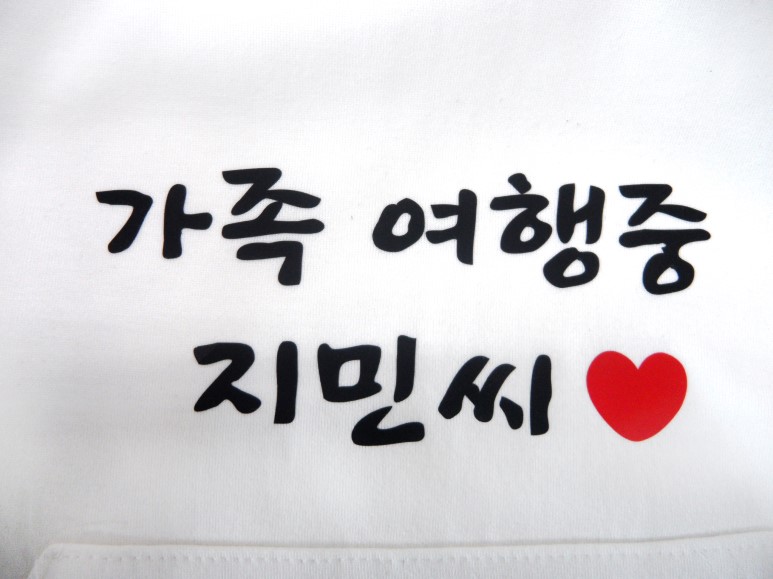 가족 여행중
지민씨♥